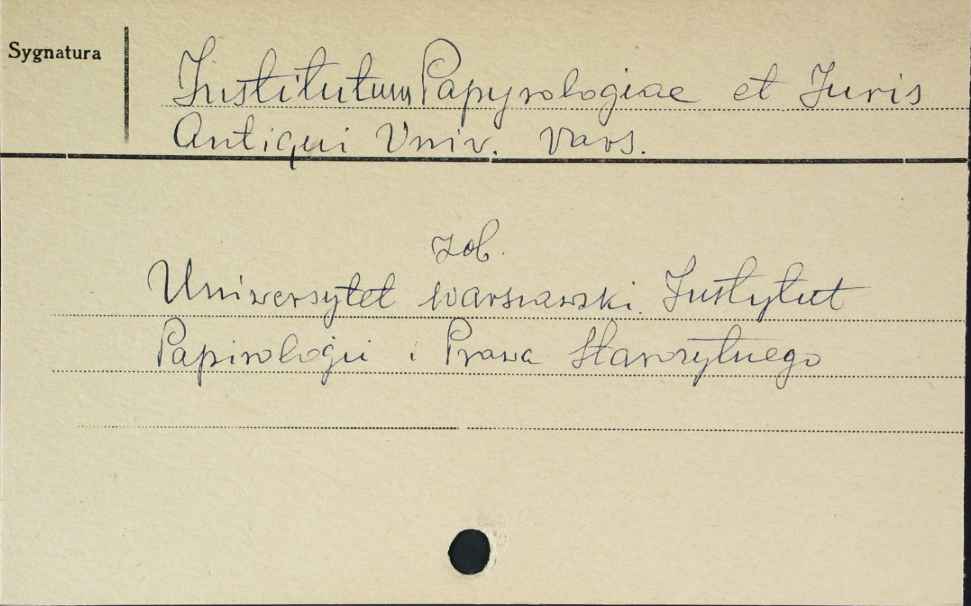 Sygnatura
Institutum Papyrologiae et Juris
Antiqui Univ. Vars.
zob.
Uniwersytet Warszawski. Instytut
Papirologii i Prawa Starożytnego